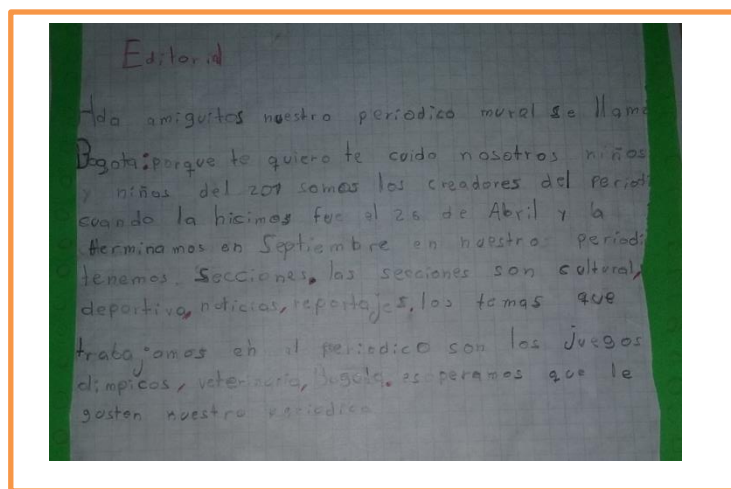 Editorial
Hola amiguitos nuestro periodico mural se llama
Bogota: porque te quiero te cuido nosotros niños
y niños del 201 somos los creadores del period
cuando la hicimos fue el 26 de Abril y la
terminamos en Septiembre en nuestro periodi
tenemos. Secciones, las secciones son cultural,
deportiva, noticias, reportajes, los temas que
trabajamos en el periodico son los juegos
olimpicos, veterinaria, Bogota. esoperamos que le
gosten nuestro periodico